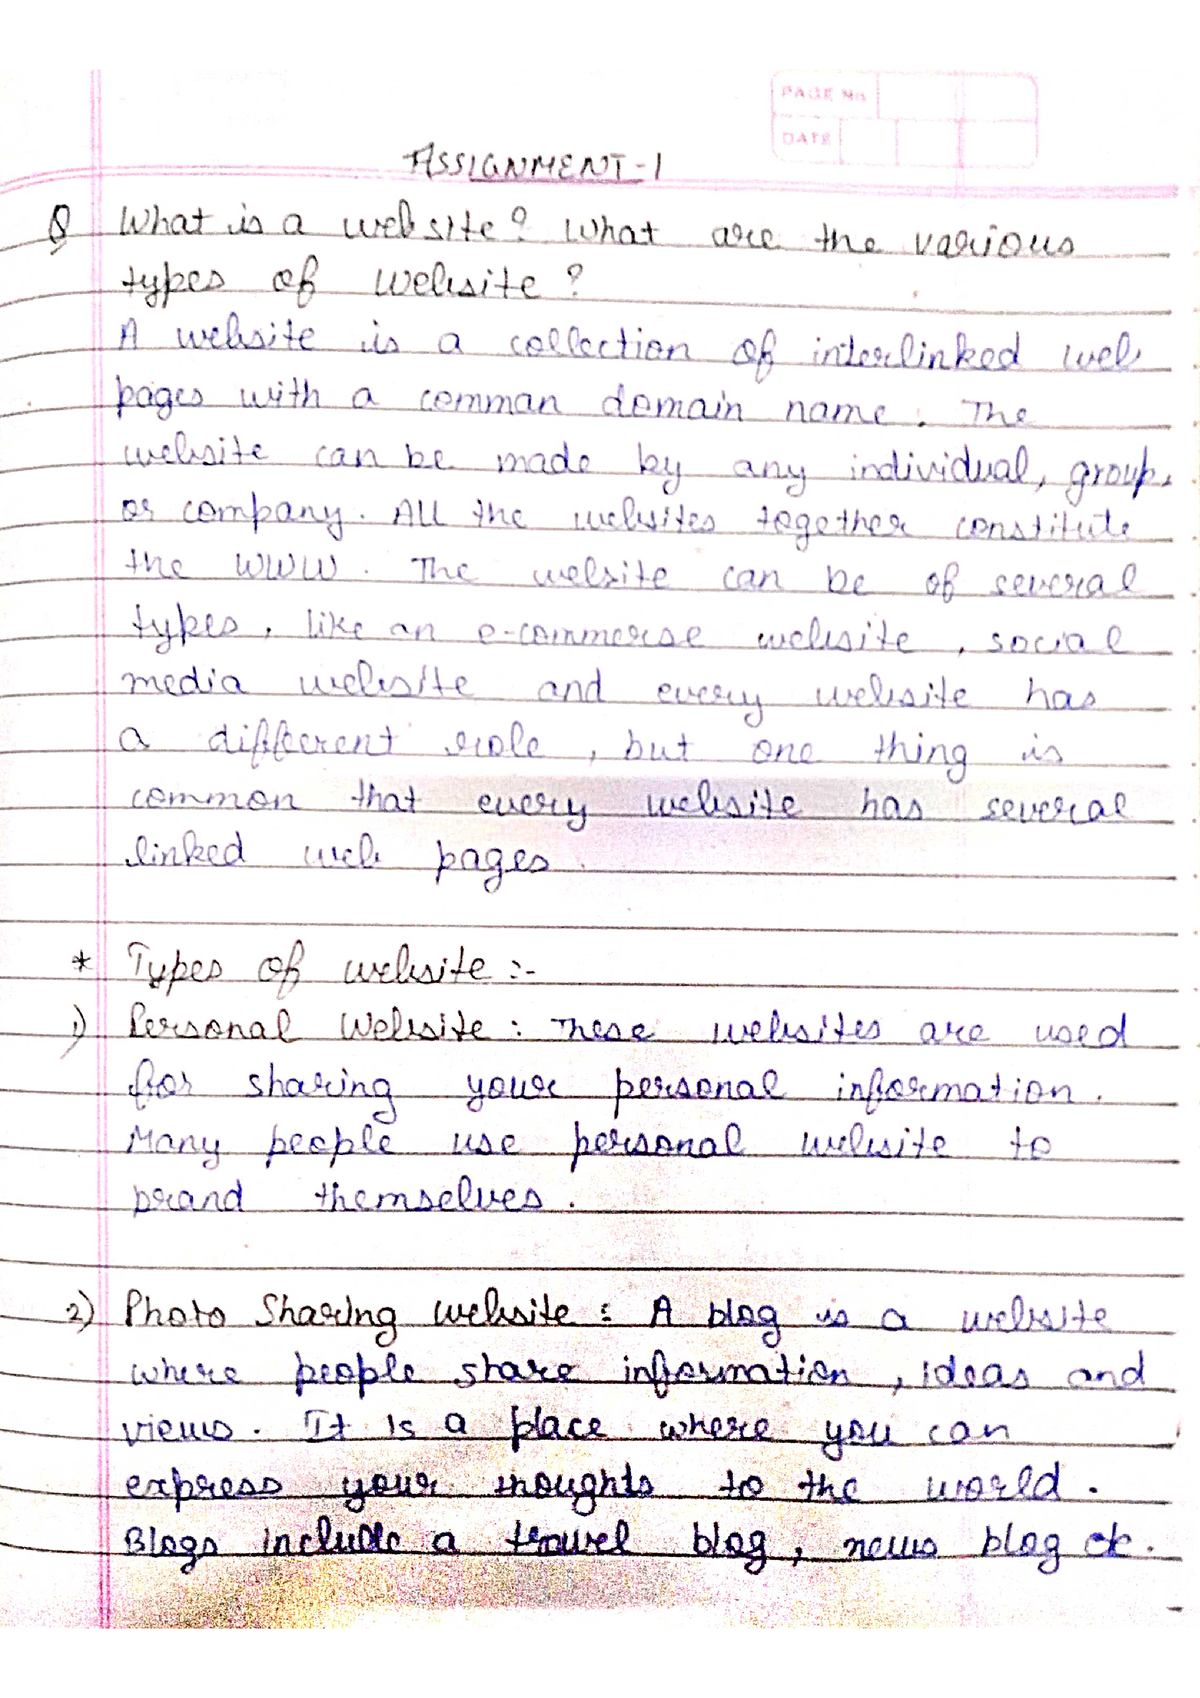 PAGE No.
DATE
ASSIGNMENT-1
Q What is a website? What are the various
types of website?
A website is a collection of interlinked web
pages with a comman domain name. The
website can be made by any individual, group,
or company. All the websites together constitute
the WWW. The website can be of several
types, like an e-commerse website, social
media website and every website has
a different role, but one thing is
common that every website has several
linked web pages.
* Types of website :-
1) Personal Website : These websites are used
for sharing your personal information.
Many people use personal website to
brand themselves.
2) Photo Sharing website : A blog is a website
where people share information, ideas and
views. It is a place where you can
express your thoughts to the world.
Blogs include a travel blog, news blog etc.